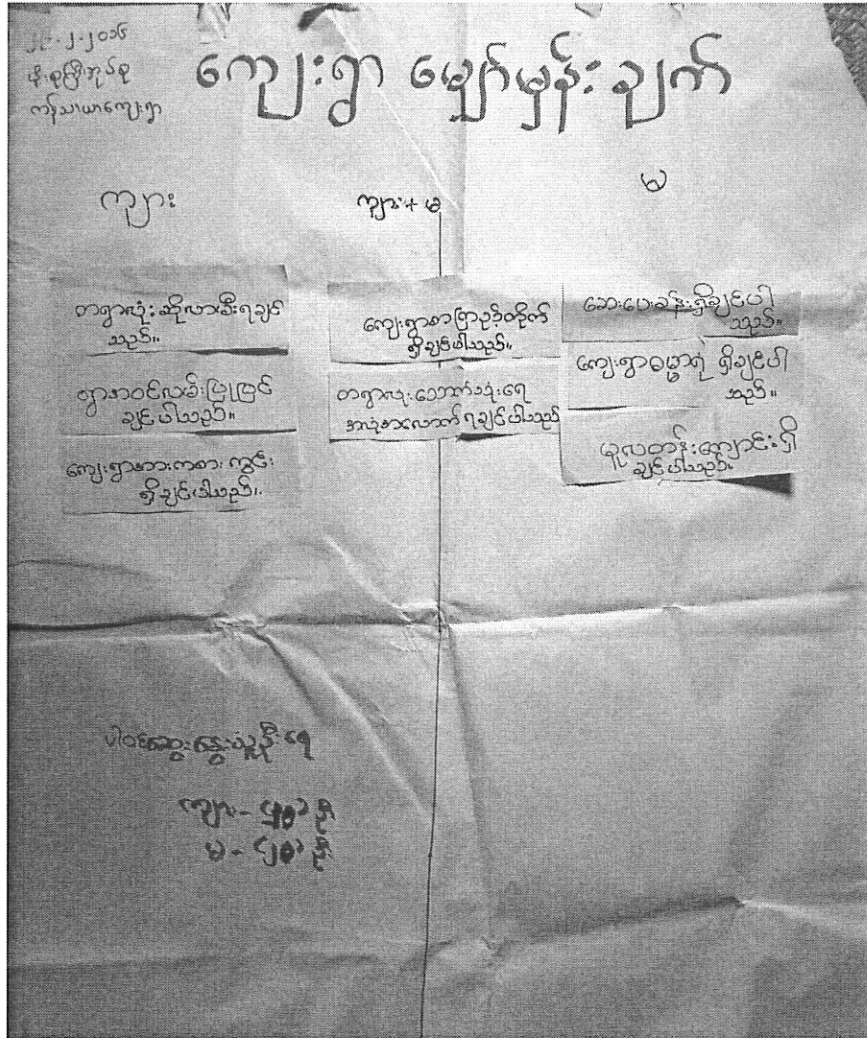 ၂-၂၀၁၆
ကန်သာယာကျေးရွာ
ကျေးရွာ မျှော်မှန်းချက်
ကျား
ကျား + မ
မ
တရွာလုံးဆိုလာမီးရချင်
သည်။
ရွာအဝင်လမ်းပြုပြင်
ချင်ပါသည်။
ကျေးရွာအားကစားကွင်း
ရှိချင်ပါသည်။
ကျေးရွာစာကြည့်တိုက်
ရှိချင်ပါသည်။
တရွာလုံးသောက်သုံးရေ
အလုံအလောက်ရချင်ပါသည်
ဆေးပေးခန်းရှိချင်ပါ
သည်။
ကျေးရွာဓမ္မာရုံ ရှိချင်ပါ
သည်။
မူလတန်းကျောင်းရှိ
ချင်ပါသည်။
ပါဝင်ဆွေးနွေးသူဦးရေ
ကျား - ဦး
မ - ဦး